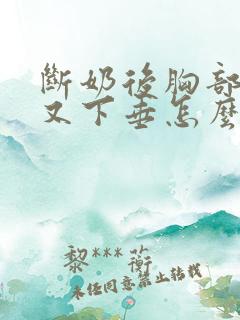 斷奶後胸部
又下垂怎麼
黎***蘅
未经同意禁止转载